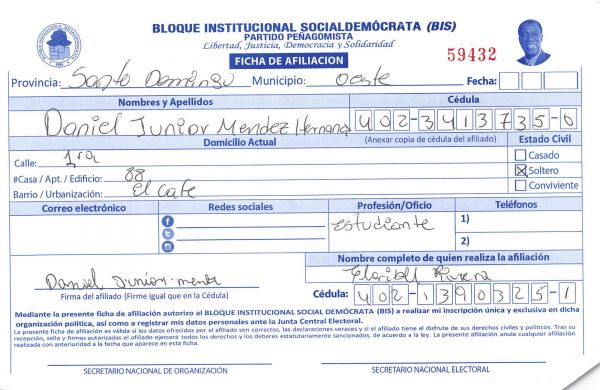 BLOQUE INSTITUCIONAL SOCIALDEMÓCRATA (BIS)
PARTIDO PEÑAGOMISTA
Libertad, Justicia, Democracia y Solidaridad
FICHA DE AFILIACION
59432
Provincia: Santo Domingo Municipio: Oeste Fecha:
Nombres y Apellidos Cédula
Daniel Junior Mendez Hernand 402-3413735-0
Domicilio Actual (Anexar copia de cédula del afiliado) Estado Civil
Calle: 1ra Casado
#Casa / Apt. / Edificio: 88 Soltero
Barrio / Urbanización: El Cafe Conviviente
Correo electrónico Redes sociales Profesión/Oficio Teléfonos
Estudiante 1)
2)
Nombre completo de quien realiza la afiliación
Daniel Junior mend Rivera
Firma del afiliado (Firme igual que en la Cédula) Cédula: 402-1390325-1
Mediante la presente ficha de afiliación autorizo al BLOQUE INSTITUCIONAL SOCIAL DEMÓCRATA (BIS) a realizar mi inscripción única y exclusiva en dicha
organización política, así como a registrar mis datos personales ante la Junta Central Electoral.
La presente ficha de afiliación es válida si los datos ofrecidos por el afiliado son correctos, las declaraciones veraces y si el afiliado tiene el disfrute de sus derechos civiles y políticos. Tras su
recepción, sello y firmas autorizadas el afiliado ejercerá todos los derechos y los deberes estatutariamente sancionados, de acuerdo a la ley. La presente afiliación anula cualquier afiliación
realizada con anterioridad a la fecha que aparece en esta ficha.
SECRETARIO NACIONAL DE ORGANIZACIÓN SECRETARIO NACIONAL ELECTORAL